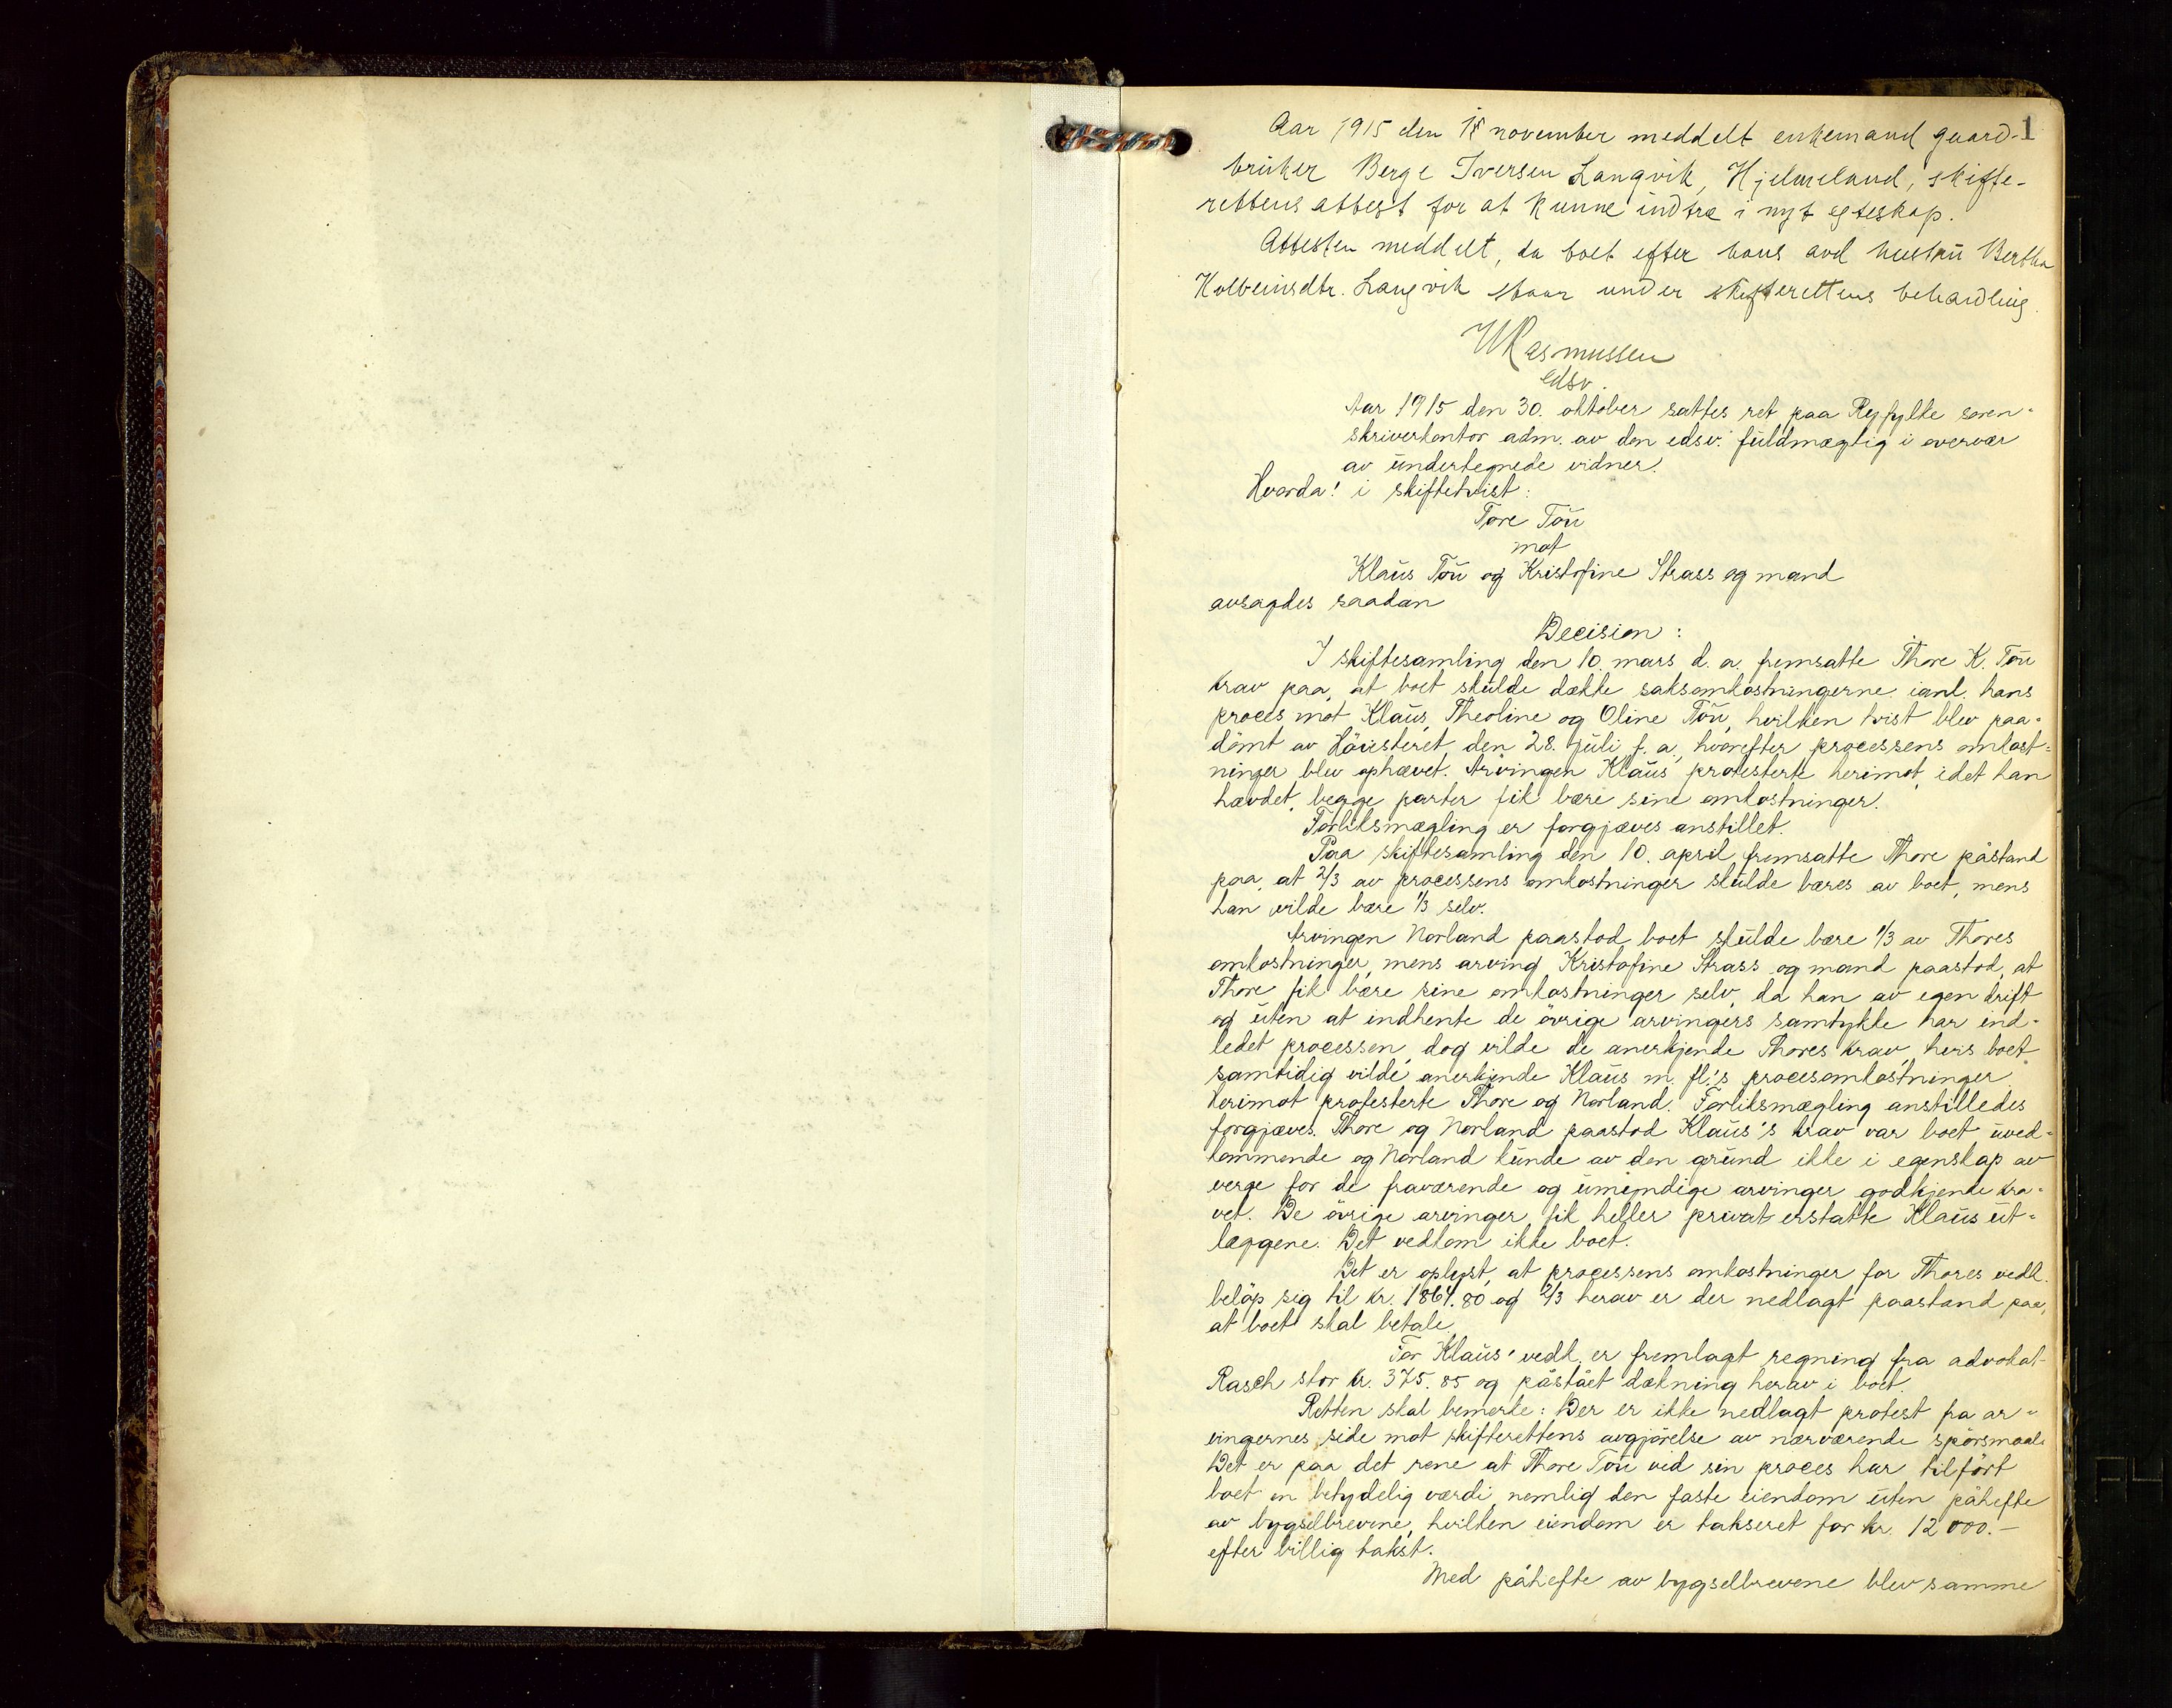 1
Aar 1915 den 18 november meddelt enkemand gaard-
bruker Berge Iversen Langvik, Hjelmeland, skifte-
rettens attest for at kunne indtræ i nyt egteskap.
Attesten meddelt, da boet efter hans avd hustru Bertha
Kolbeinsdtr. Langvik staar under skifterettens behandling.
WRasmussen
edsv.
Aar 1915 den 30. oktober sattes ret paa Ryfylke soren-
skriverkontor adm. av den edsv. fuldmægtig i overvær
av undertegnede vidner.
Hvorda! i skiftetvist:
Tore Tou
mot
Klaus Tou og Kristofine Strass og mand
avsagdes saadan
Decision:
I skiftesamling den 10. mars d. a. fremsatte Thore K. Tou
krav paa, at boet skulde dække saksomkostningerne ianl. hans
proces mot Klaus, Theoline og Oline Tou, hvilken tvist blev paa-
dömt av Höiesteret den 28. juli f. a, hvorefter processens omkost-
ninger blev ophævet. Arvingen Klaus protesterte herimot, idet han
hævdet, begge parter fik bære sine omkostninger.
Forliksmægling er forgjæves anstillet.
Paa skiftesamling den 10. april fremsatte Thore påstand
paa, at 2/3 av processens omkostninger skulde bæres av boet, mens
han vilde bære 1/3 selv.
Arvingen Norland paastod boet skulde bære 1/3 av Thores
omkostninger, mens arving Kristofine Strass og mand paastod, at
Thore fik bære sine omkostninger selv, da han av egen drift
og uten at indhente de övrige arvingers samtykke har ind-
ledet processen, dog vilde de anerkjende Thores krav, hvis boet
samtidig vilde anerkjende Klaus m. fl.'s procesomkostninger
Herimot protesterte Thore og Norland. Forliksmægling anstilledes
forgjæves. Thore og Norland paastod Klaus's krav var boet uved-
kommende og Norland kunde av den grund ikke i egenskap av
verge for de fraværende og umyndige arvinger godkjende kra-
vet. De övrige arvinger fik heller privat erstatte Klaus ut-
læggene. Det vedkom ikke boet.
Det er oplyst, at processens omkostninger for Thores vedk.
belöp sig til kr. 1864.80 og 2/3 herav er der nedlagt paastand paa,
at boet skal betale.
For Klaus' vedk. er fremlagt regning fra advokat
Rasch stor kr. 375.85 og påstået dækning herav i boet.
Retten skal bemerke: Der er ikke nedlagt protest fra ar-
vingernes side mot skifterettens avgjörelse av nærværende spörsmaal.
Det er paa det rene at Thore Tou ved sin proces har tilfört
boet en betydelig værdi, nemlig den faste eiendom uten påhefte
av bygselbrevene, hvilken eiendom er takseret for kr. 12 000.-
efter billig takst.
Med påhefte av bygselbrevene blev samme